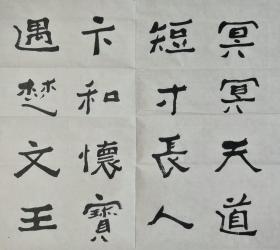 冥冥天道
短寸長人
卞和懷寶
遇楚文王